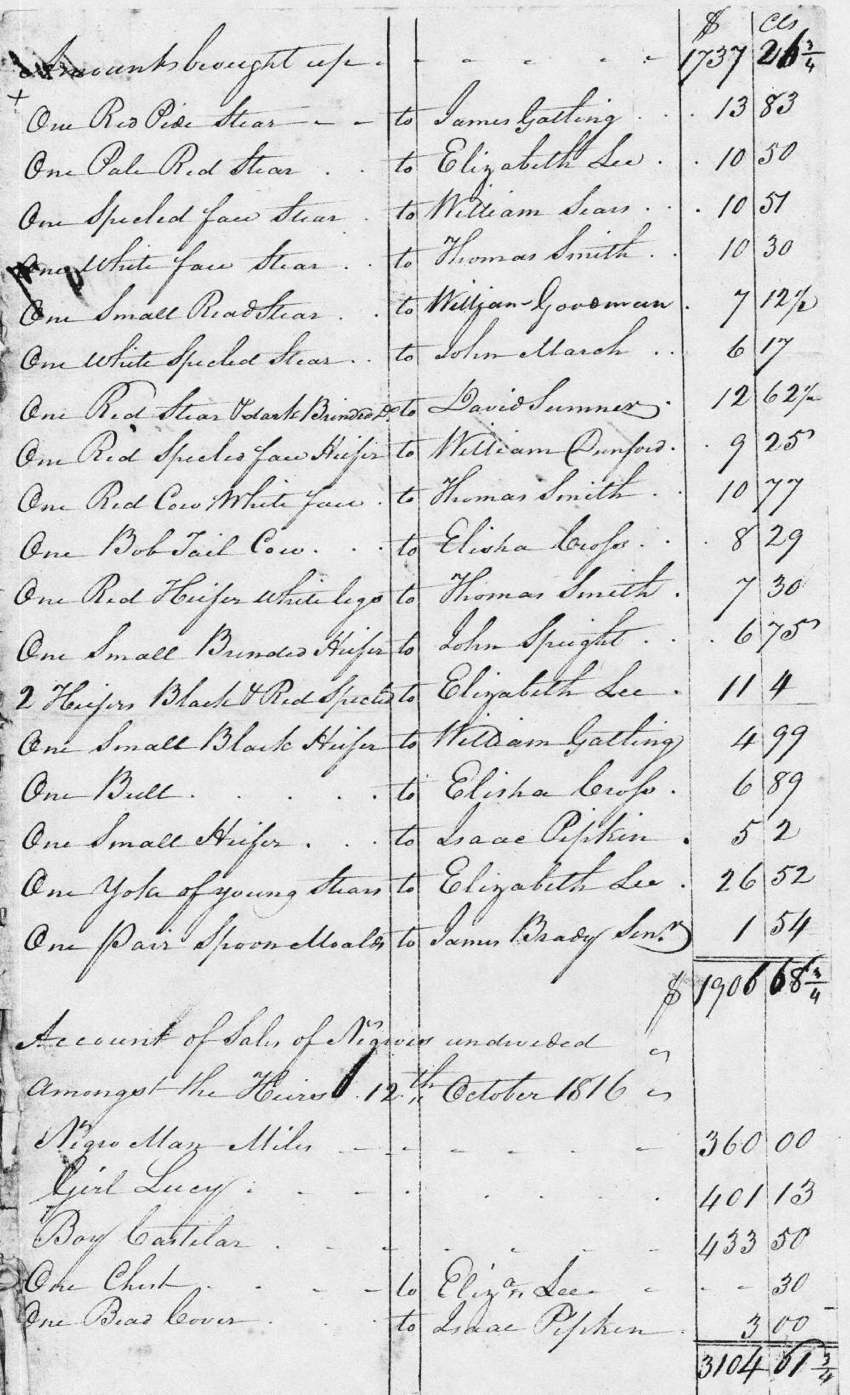 $ Cts
Amounts brought up - - - - - - 1737 26 3/4
One Red Pide Stear - - to James Gatling . . . 13 83
One Pale Red Stear . . to Elizabeth Lee . . 10 50
One Specled face Stear . to William Sears . . . 10 51
One White face Stear . . to Thomas Smith . . 10 30
One Small Read Stear . . to William Goodman . 7 12 1/2
One White Specled Stear . . to John March . . 6 17
One Red Stear & dark Brinded Do to David Sumner . 12 62 1/2
One Red Specled face Heifer to William Dunford . . 9 25
One Red Cow White face . to Thomas Smith . . 10 77
One Bob Tail Cow . . . to Elisha Cross . . . 8 29
One Red Heifer White legs to Thomas Smith . 7 30
One Small Brinded Heifer to John Speight . . . 6 75
2 Heifers Black & Red Specled to Elizabeth Lee . 11 4
One Small Black Heifer to William Gatling 4 99
One Bull . . . . . to Elisha Cross . 6 89
One Small Heifer . . . to Isaac Pipkin . 5 2
One Yoke of young Stears to Elizabeth Lee . 26 52
One pair Spoon Moalds to James Brady Senr 1 54
$ 1906 68 3/4
Account of Sales of Negroes undivided "
amongst the Heirs 12th October 1816 "
Negro Man Miles - - - - - - 360 00
Girl Lucy . - - - . . . . 401 13
Boy Castelar . . - . . . . 433 50
One Chest . . - - to Elizan Lee - - - - 30
One Bead Cover . . . to Isaac Pipkin . 3 00
3104 61 3/4